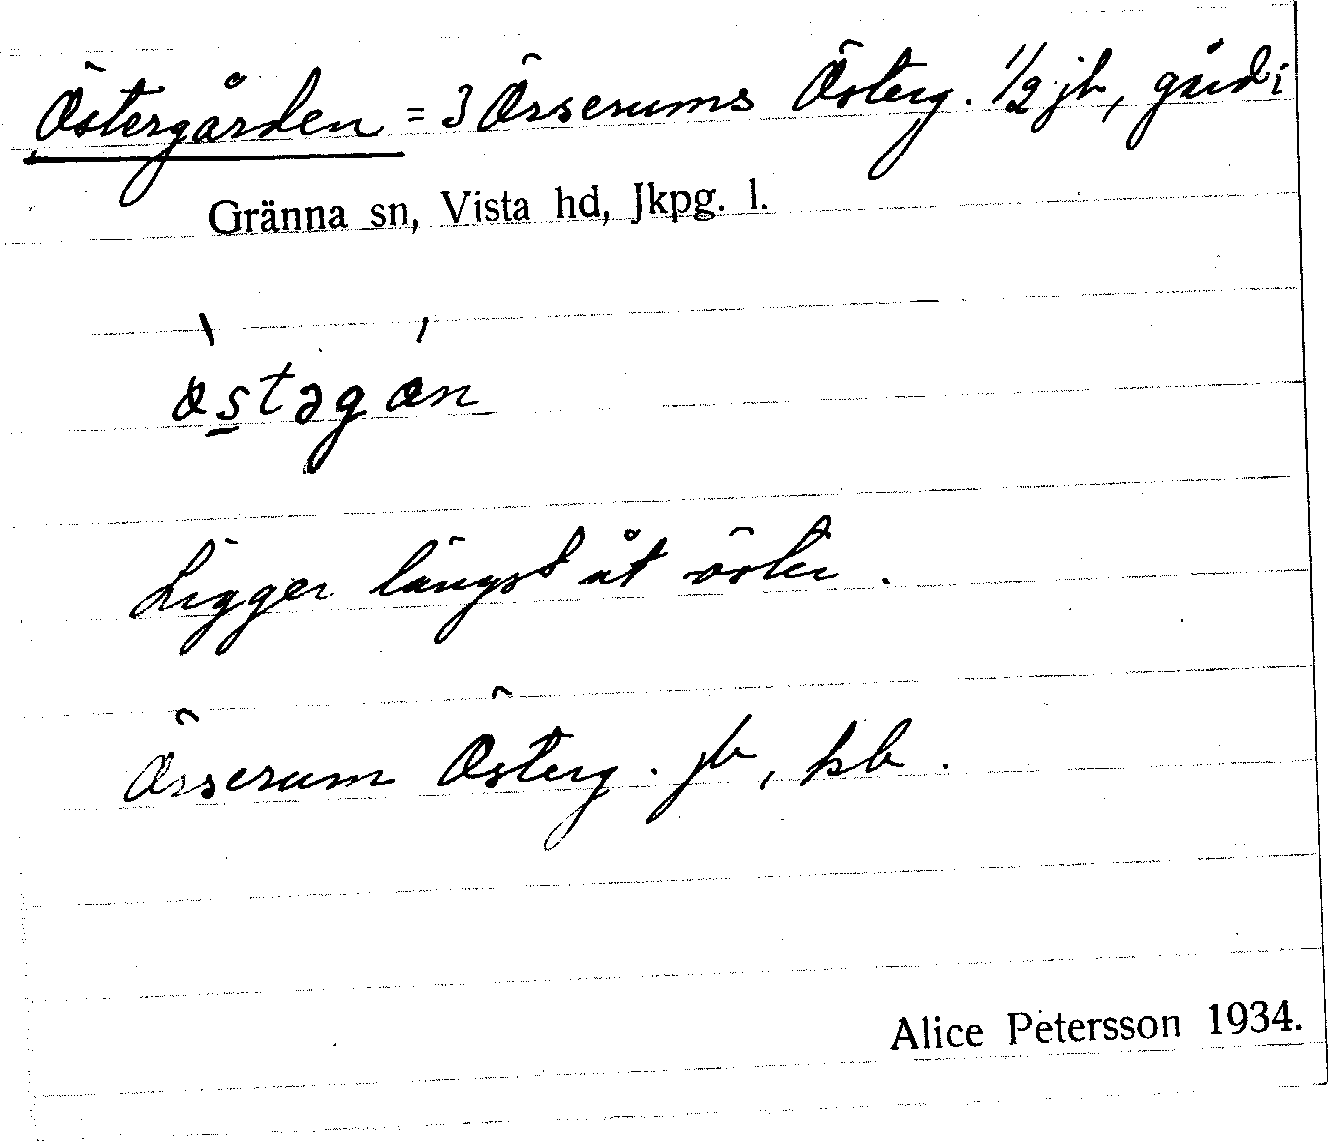 Östergården = 3 Örserums Österg. 1/2 jb, gård i
Gränna sn, Vista hd, Jkpg. l.
Ligger längst åt öster.
Örserum Österg. jb, kb.
Alice Petersson 1934.